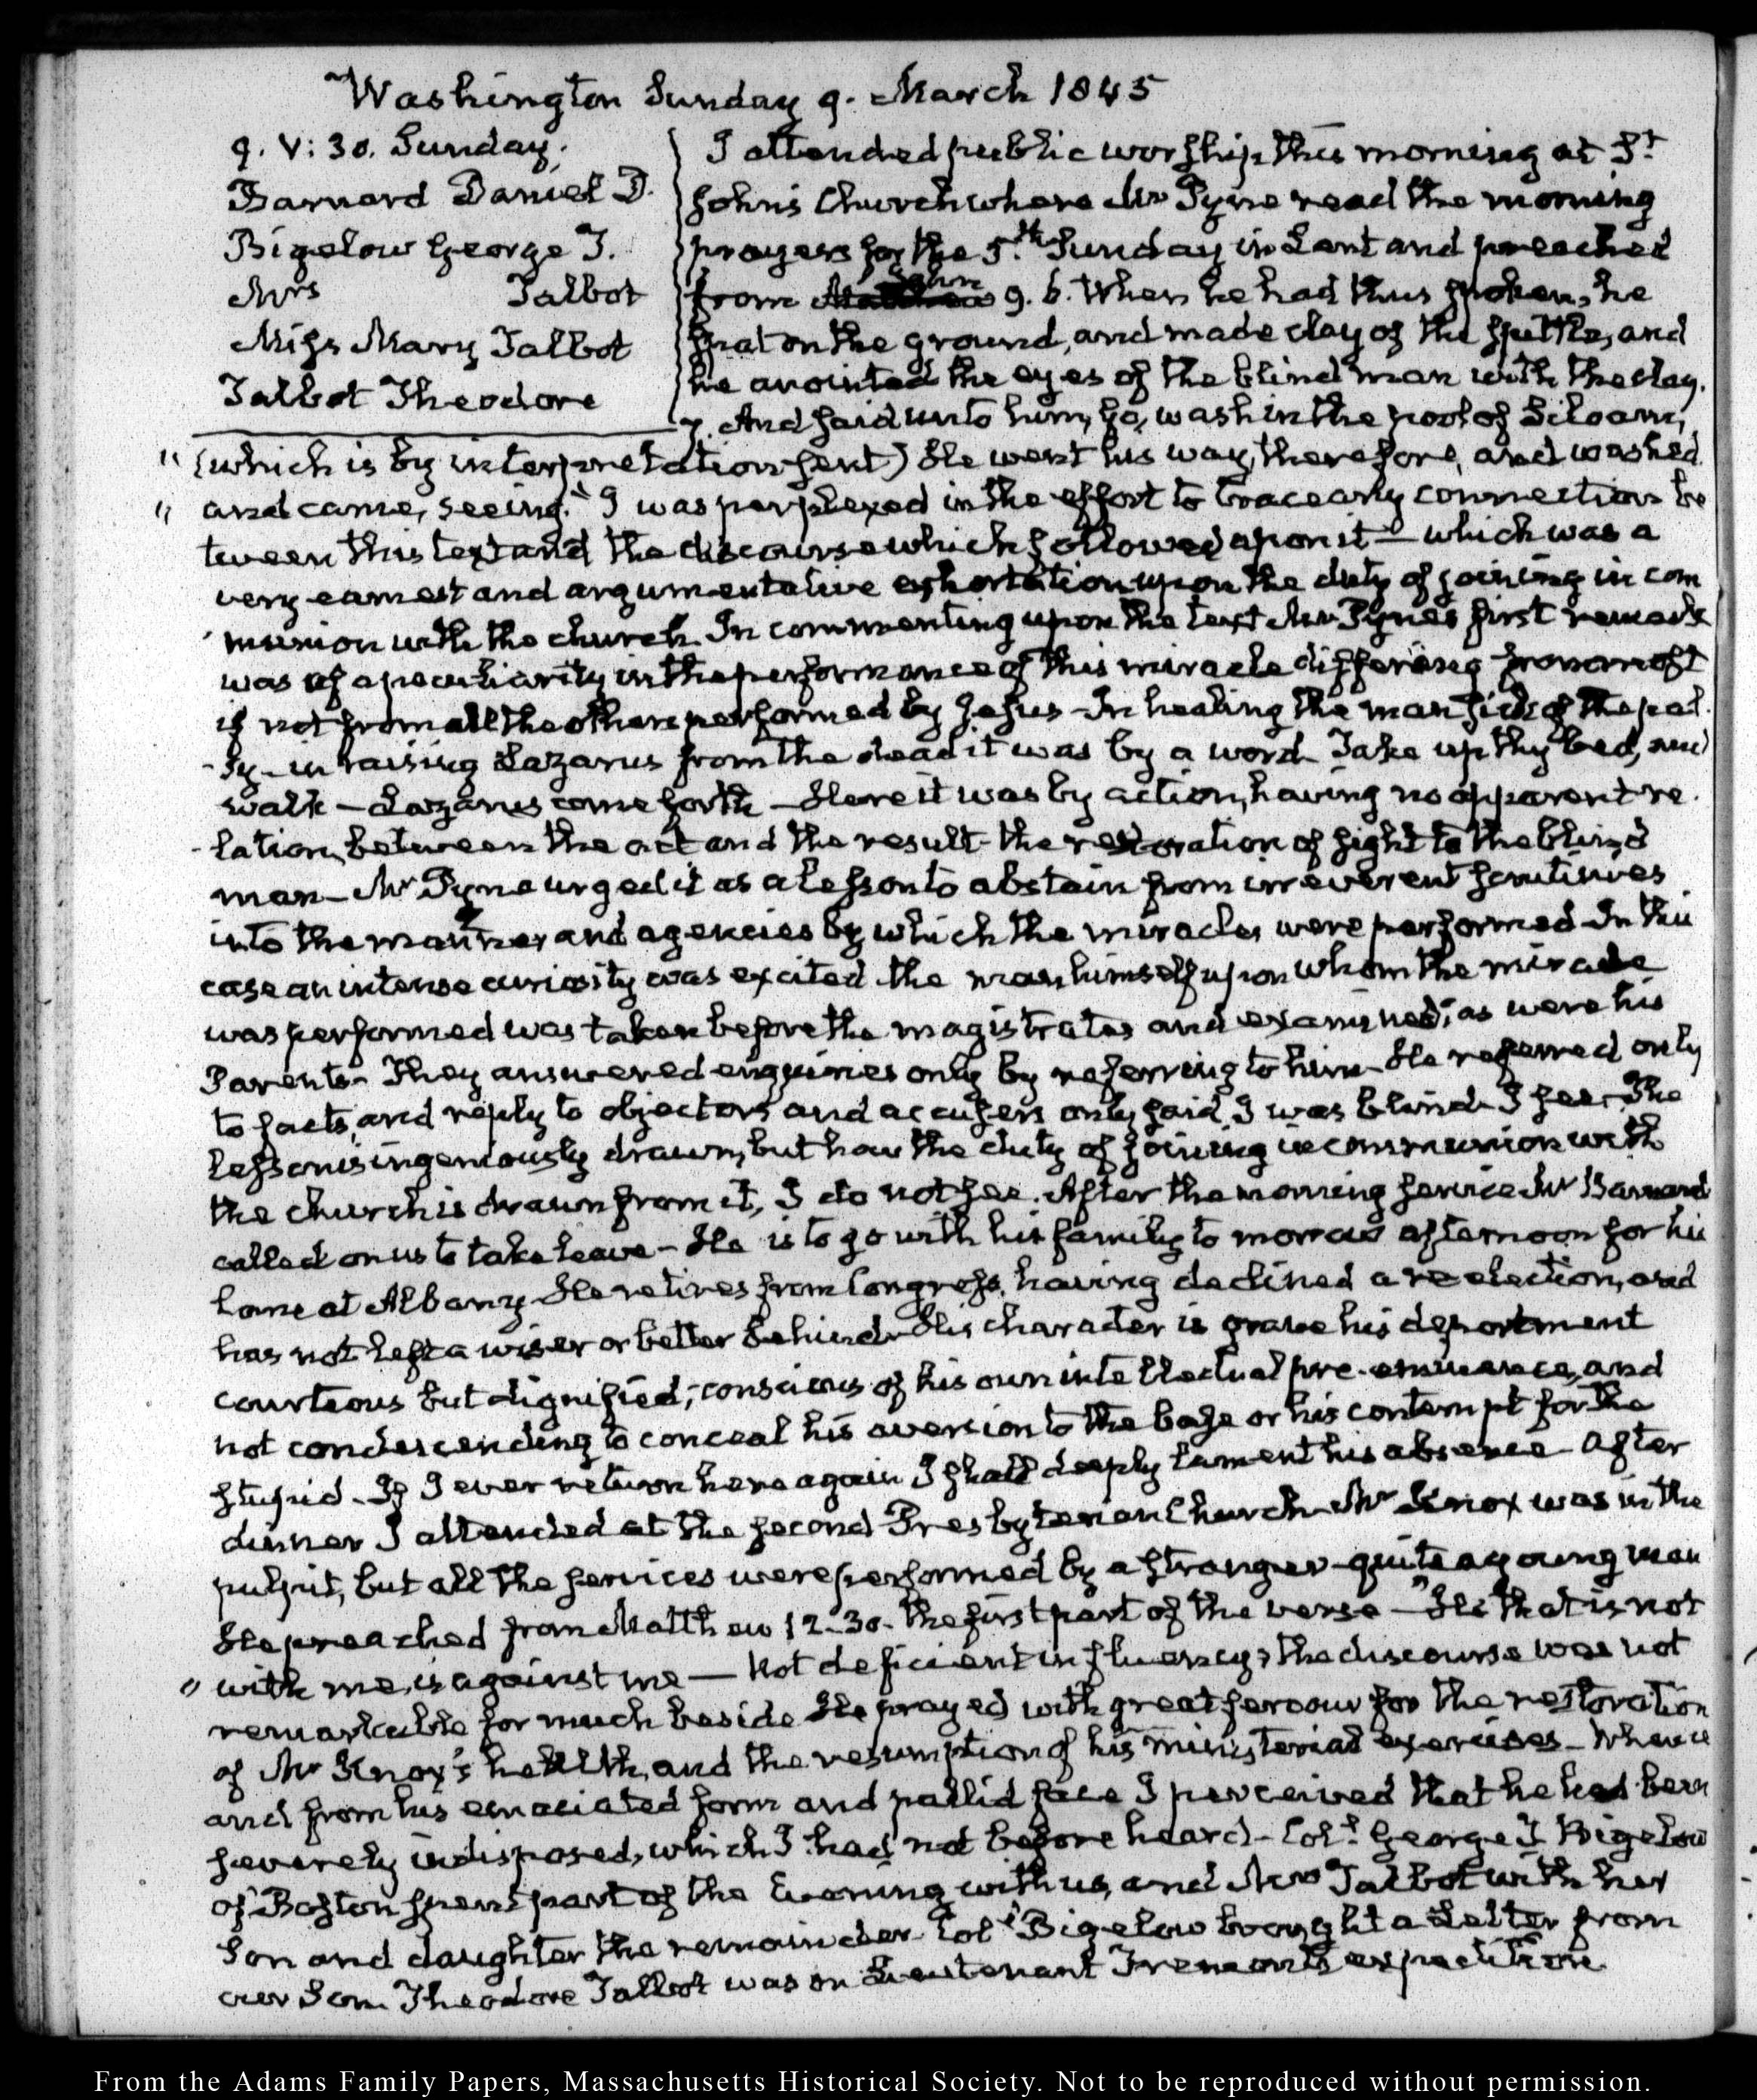 Washington Sunday 9. March 1845
9. V: 30. Sunday.
Barnard Daniel D.
Bigelow George T.
Mrs Talbot
Miss Mary Talbot
Talbot Theodore
I attended public worship this morning at St
John's Church where Mr Pyne read the morning
prayers for the 5th Sunday in Lent and preached
from John 9. 6. When he had thus spoken, he
spat on the ground, and made clay of the spittle, and
he anointed the eyes of the blind man with the clay.
7. And said unto him, Go, wash in the pool of Siloam,
" (which is by interpretation sent) He went his way, therefore, and washed
" and came, seeing." I was perplexed in the effort to trace any connection be
tween this text and the discourse which followed upon it — which was a
very earnest and argumentative exhortation upon the duty of joining in com
munion with the church. In commenting upon the text Mr Pyne's first remark
was of a peculiarity in the performance of this miracle differing from most
if not from all the others performed by Jesus - In healing the man sick of the pal-
-sy - in raising Lazarus from the dead it was by a word - Take up thy bed, and
walk — Lazarus come forth — Here it was by action, having no apparent re-
-lation, between the act and the result - the restoration of sight to the blind
man — Mr Pyne urged it as a lesson to abstain from irreverent scrutinies
into the manner and agencies by which the miracles were performed - In this
case an intense curiosity was excited - the man himself upon whom the miracle
was performed was taken before the magistrates and examined; as were his
Parents - They answered enquiries only by referring to him - He referred only
to facts, and reply to objectors and accusers only said, I was blind - I see - The
lesson is ingeniously drawn, but how the duty of joining in communion with
the church is drawn from it, I do not see. After the morning service Mr Barnard
called on us to take leave - He is to go with his family to morrow afternoon for his
home at Albany - He retires from Congress, having declined a re-election, and
has not left a wiser or better behind - His character is grave his deportment
courteous but dignified; conscious of his own intellectual pre-eminence, and
not condescending to conceal his aversion to the base or his contempt for the
stupid - If I ever return here again I shall deeply lament his absence - After
dinner I attended at the second Presbyterian Church - Mr Knox was in the
pulpit, but all the services were performed by a stranger - quite a young man
He preached from Matthew 12. 30. the first part of the verse — "He that is not
" with me, is against me — Not deficient in fluency, the discourse was not
remarkable for much beside - He prayed with great fervour for the restoration
of Mr Knox's health, and the resumption of his ministerial exercises - Whence
and from his emaciated form and pallid face I perceived that he had been
severely indisposed, which I had not before heard - Coll. George T Bigelow
of Boston spent part of the Evening with us, and Mrs Talbot with her
Son and daughter the remainder - Coll Bigelow brought a Letter from
our Son. Theodore Talbot was on Lieutenant Fremont's expedition
From the Adams Family Papers, Massachusetts Historical Society. Not to be reproduced without permission.